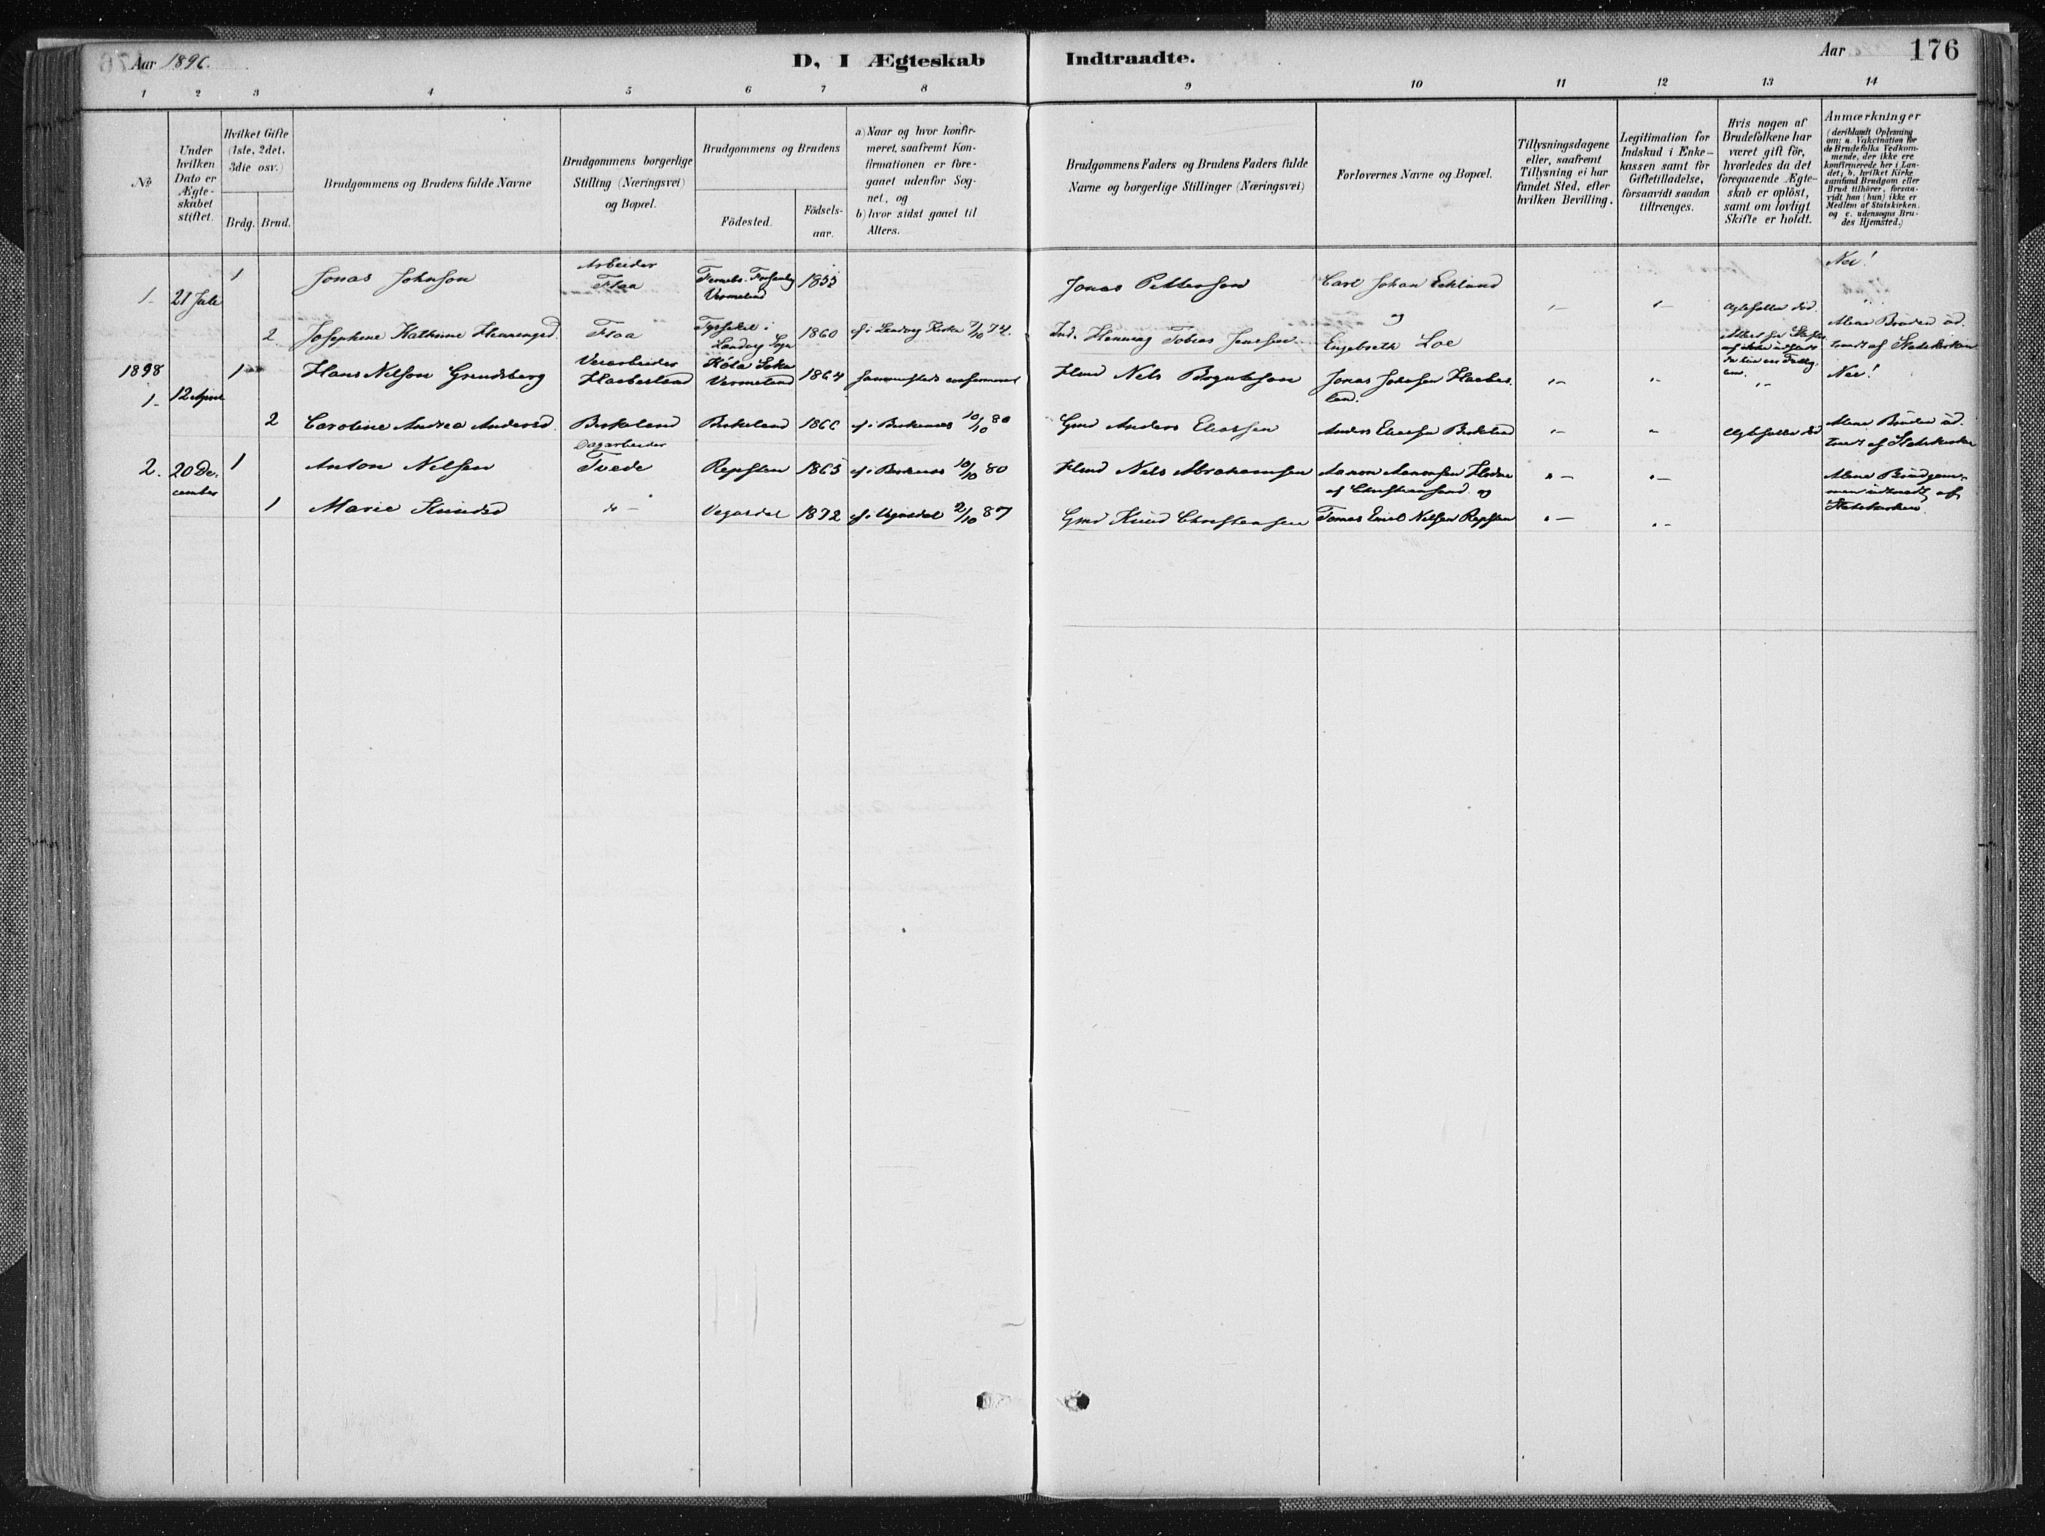 Aar 1896.
D, I Ægteskab
Indtraadte.
Aar
176
1 2 3 4 5 6 7 8 9 10 11 12 13 14
No
Under
hvilken
Dato er
Ægte-
skabet
stiftet.
Hvilket Gifte
(1ste, 2det,
3die osv.)
Brdg. Brud.
Brudgommens og Brudens fulde Navne
Brudgommens borgerlige
Stilling (Næringsvei)
og Bopæl.
Brudgommens og Brudens
Födested.
Födsels-
aar.
a) Naar og hvor konfir-
meret, saafremt Kon-
firmationen er fore-
gaaet udenfor Sog-
net, og
b) hvor sidst gaaet til
Alters.
Brudgommens Faders og Brudens Faders fulde
Navne og borgerlige Stillinger (Næringsvei)
Forlovernes Navne og Bopæl.
Tillysningsdagene
eller, saafremt
Tillysning ei har
fundet Sted, efter
hvilken Bevilling.
Legitimation for
Indskud i Enke-
kassen samt for
Giftetilladelse,
forsaavidt saadan
tiltrænges.
Hvis nogen af
Brudefolkene har
været gift för,
hvorledes da det
foregaaende Ægte-
skab er oplöst,
samt om lovligt
Skifte er holdt.
Anmærkninger
(deriblandt Oplysning
om: a. Vakcination for
de Brudefolks Vedkom-
mende, der ikke ere
konfirmerede her i Lan-
det; b. hvilket Kirke-
samfund Brudgom eller
Brud tilhörer, forsaa-
vidt han (hun) ikke er
Medlem af Statskirken,
og c. udensogns Bru-
des Hjemsted.)
1 21 Juli 1 Jonas Johnson Arbeider Flaa Vermeland 1855 Jonas Petterson Carl Johan Eklund Nei!
og
2 Josephine Kathrine Henningsd. Flaa Landvig Sogn 1860 c. i Landvig Kirke 4/10 74 Ind. Henning Tobias Jensen Engebreth Loe Ægtefælle död. Alene Bruden ud-
traadt af Statskirken
1898
1 12 April 1 Hans Nilson Grundsberg Veiarbeider Haabesland Köla Sokn Vermeland 1864 Hmd Nels Jonas Johnsen Haabes-
land. Nei!
2 Caroline Andrea Andersd. Birkeland Birkeland 1860 c. i Birkenes 10/10 80 Gmd Anders Eliassen Anders Eliassen Birkeland Ægtefælle död Alene Bruden ud-
traadt af Statskirken
2. 20 De-
cember 1 Anton Nilsen Dagarbeider Tvede Repstøn 1865 c. i Birkenes 10/10 80 Hmd Nels Abrahamsen Aanon Aanonsen Hodne
af Christiansand og Alene Brudgom-
men udtraadt af
Statskirken.
1 Marie Knudsd do Vegusdal 1872 c. i Vegusdal 2/10 87 Gmd Knud Christensen Tomas Emil Nilsen Repstøn